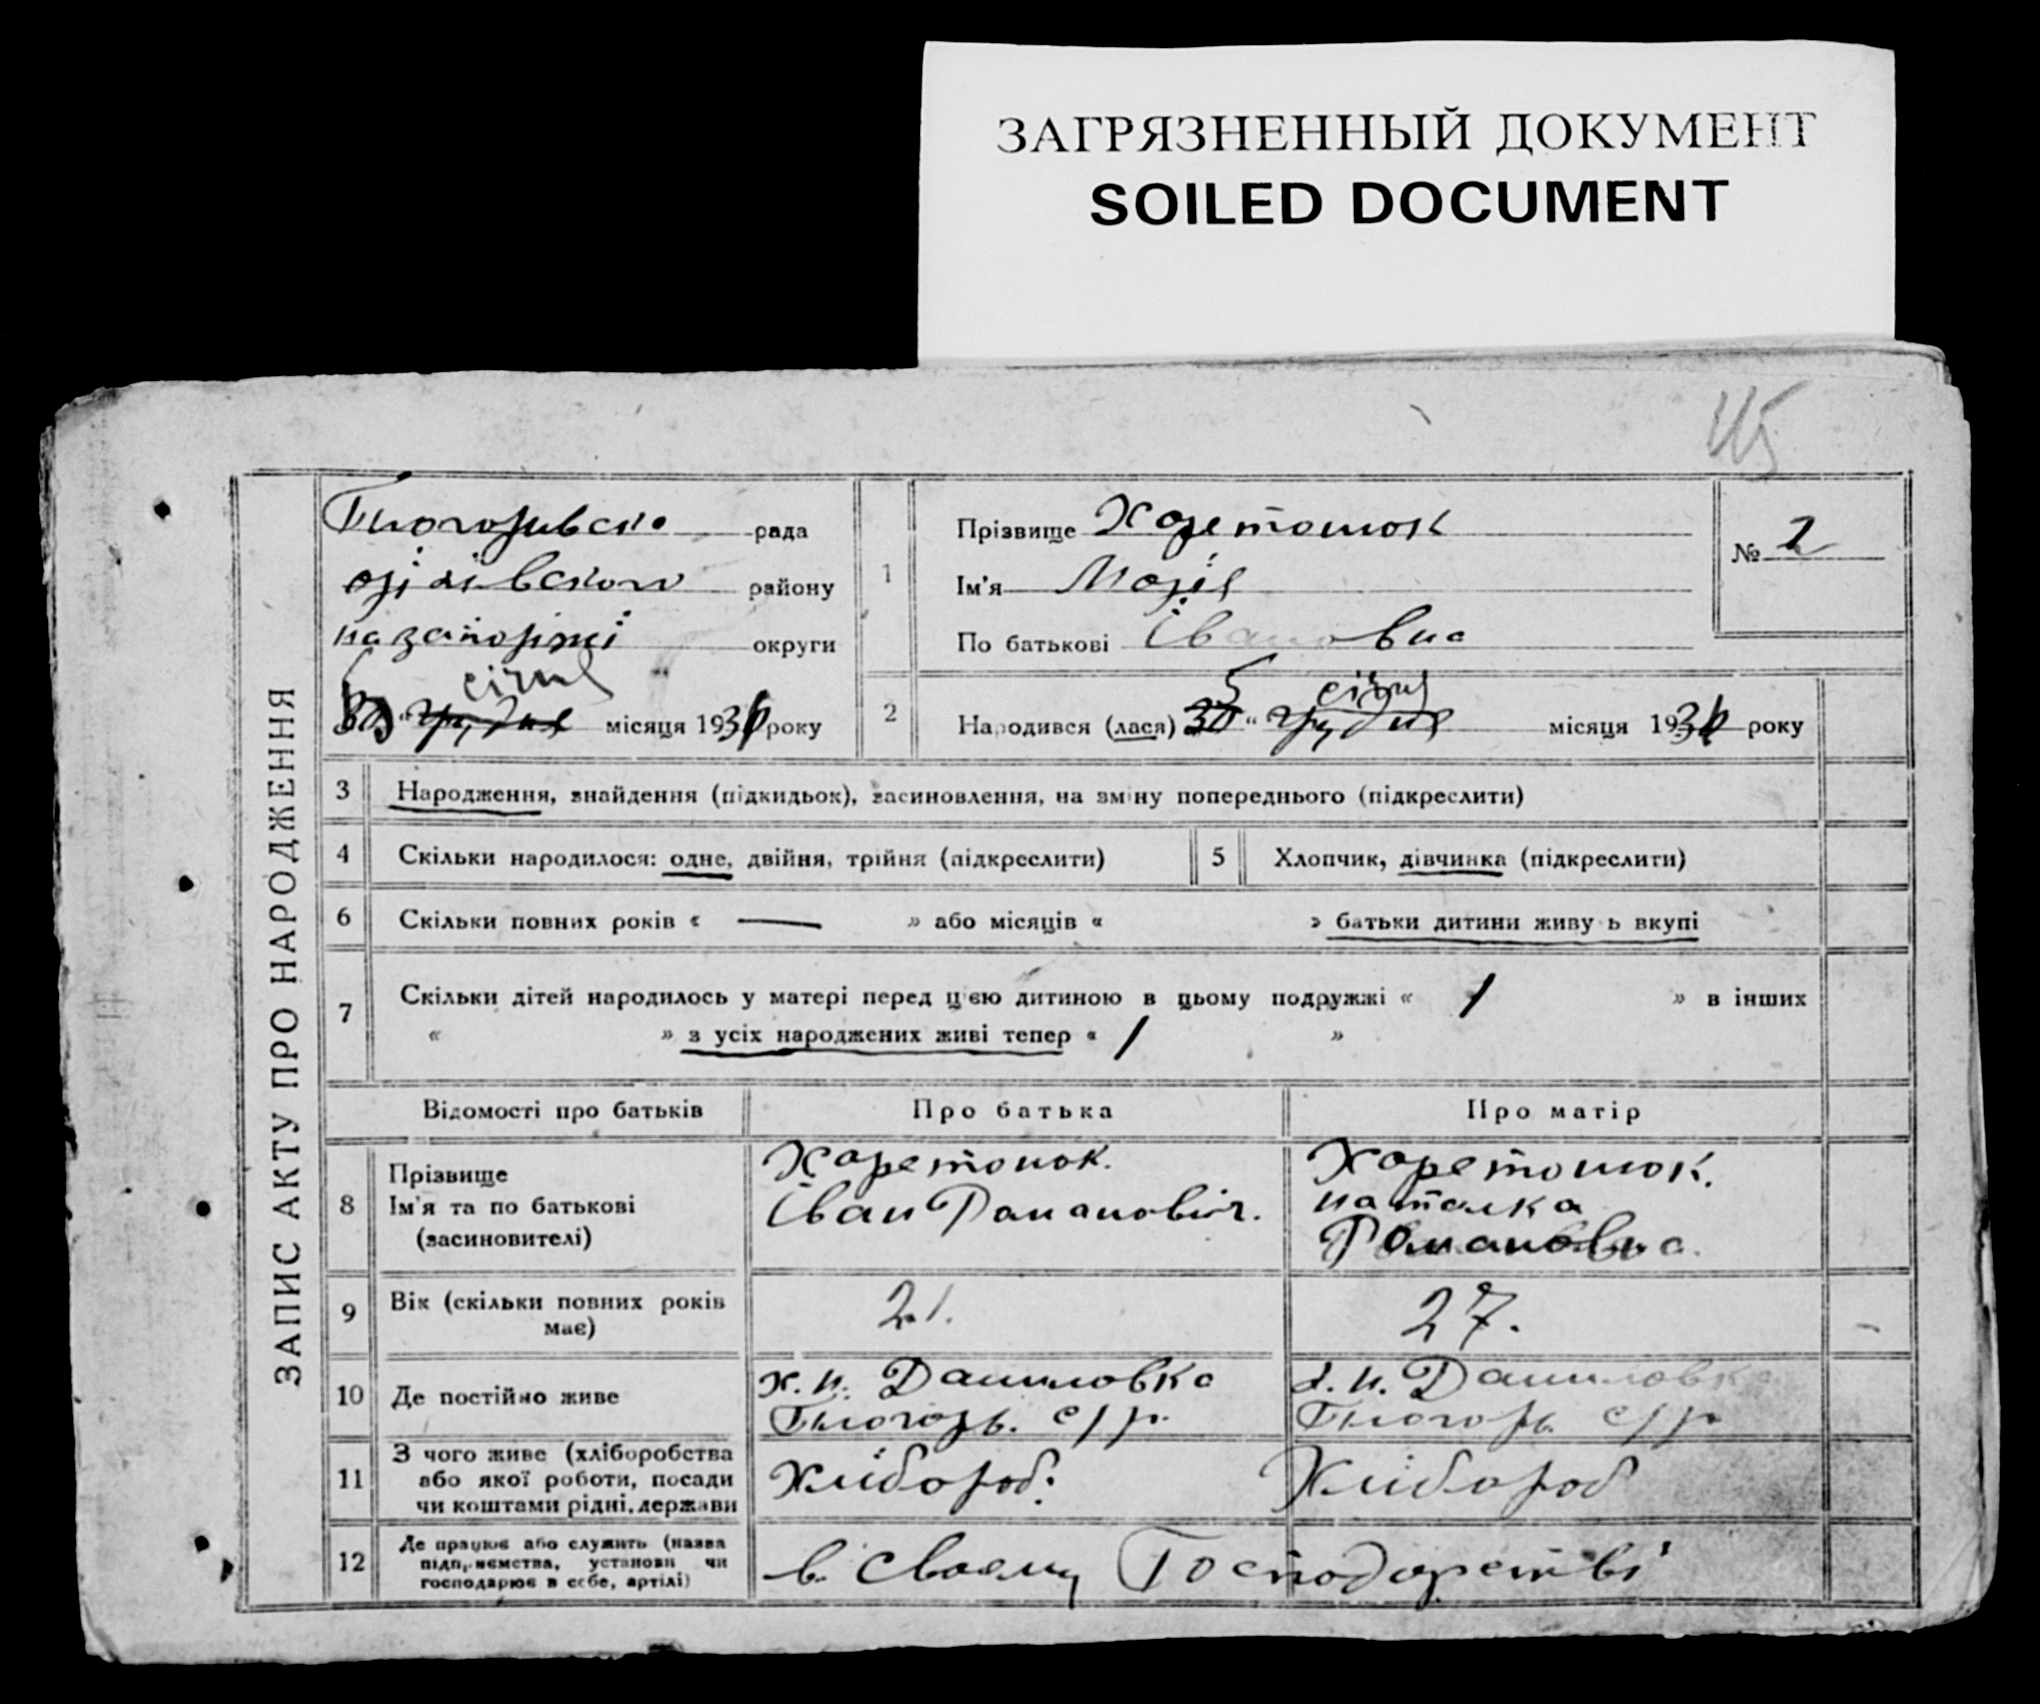 ЗАГРЯЗНЕННЫЙ ДОКУМЕНТ
SOILED DOCUMENT
ЗАПИС АКТУ ПРО НАРОДЖЕННЯ
рада
району
округи
січня
місяця 193 року
1
Прізвище Харетонюк
Ім'я Марія
По батькові Івановна
№ 2
2
5 січня
Народився (лася) 30 “ грудня місяця 193 року
3 Народження, знайдення (підкидьок), засиновлення, на зміну попереднього (підкреслити)
4 Скільки народилося: одне, двійня, трійня (підкреслити)
5 Хлопчик, дівчинка (підкреслити)
6 Скільки повних років « — » або місяців « » батьки дитини живуть вкупі
7 Скільки дітей народилось у матері перед цією дитиною в цьому подружжі « 1 » в інших
« » з усіх народжених живі тепер « 1 »
Відомості про батьків Про батька Про матір
8 Прізвище
Ім'я та по батькові
(засиновителі)
Харетонюк.
Іван Романовіч.
Харетонюк.
наталка
Романовна.
9 Вік (скільки повних років
має)
21.
27.
10 Де постійно живе
х. н. Даниловка
с/р.
х. н. Даниловка
с/р
11 З чого живе (хліборобства
або якої роботи, посади
чи коштами рідні, держави
Хлібороб.
Хлібороб
12 Де працює або служить (назва
підприємства, установи чи
господарює в себе, артілі)
в. Своему Господарстві